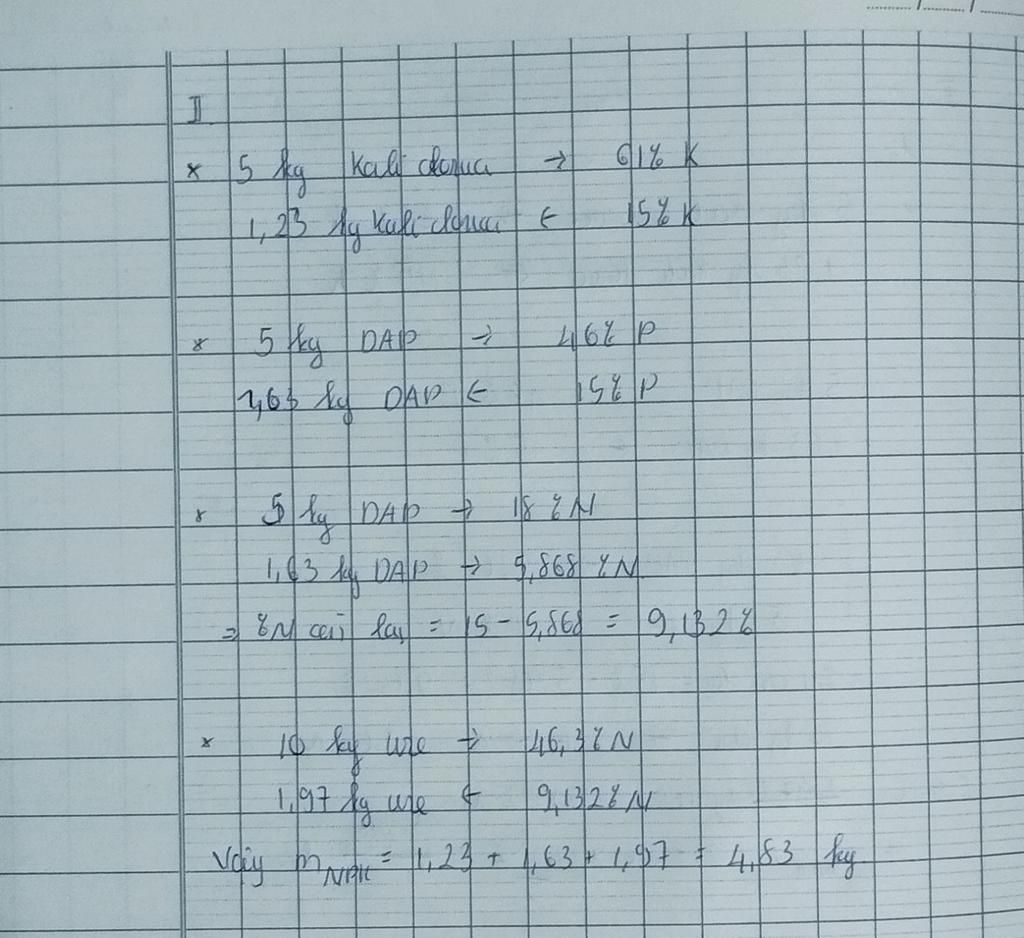 I
* 5 kg Kali clorua → 61% K
1,23 kg Kali clorua ← 15% K
* 5 kg DAP → 46% P
1,63 kg DAP ← 15% P
* 5 kg DAP → 18% N
1,63 kg DAP → 5,868 % N
⇒ %N còn lại = 15 - 5,868 = 9,132%
* 10 kg ure → 46,3% N
1,97 kg ure ← 9,132% N
Vậy m NPK = 1,23 + 1,63 + 1,97 = 4,83 kg